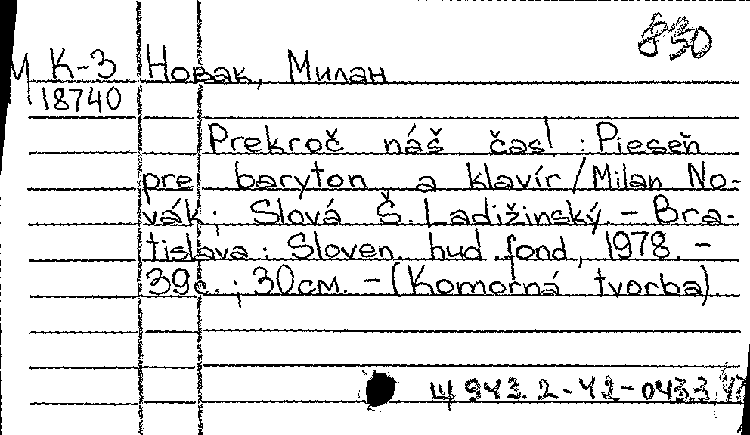 830
М К-3 Новак, Милан
18740
Prekroč náš čas! : Pieseň
pre barytón a klavír / Milan No-
vák; Slová Š. Ladižinský. - Bra-
tislava: Sloven. hud. fond, 1978. -
39с.; 30см. - (Komorná tvorba)
Ш 943.2-42-0433